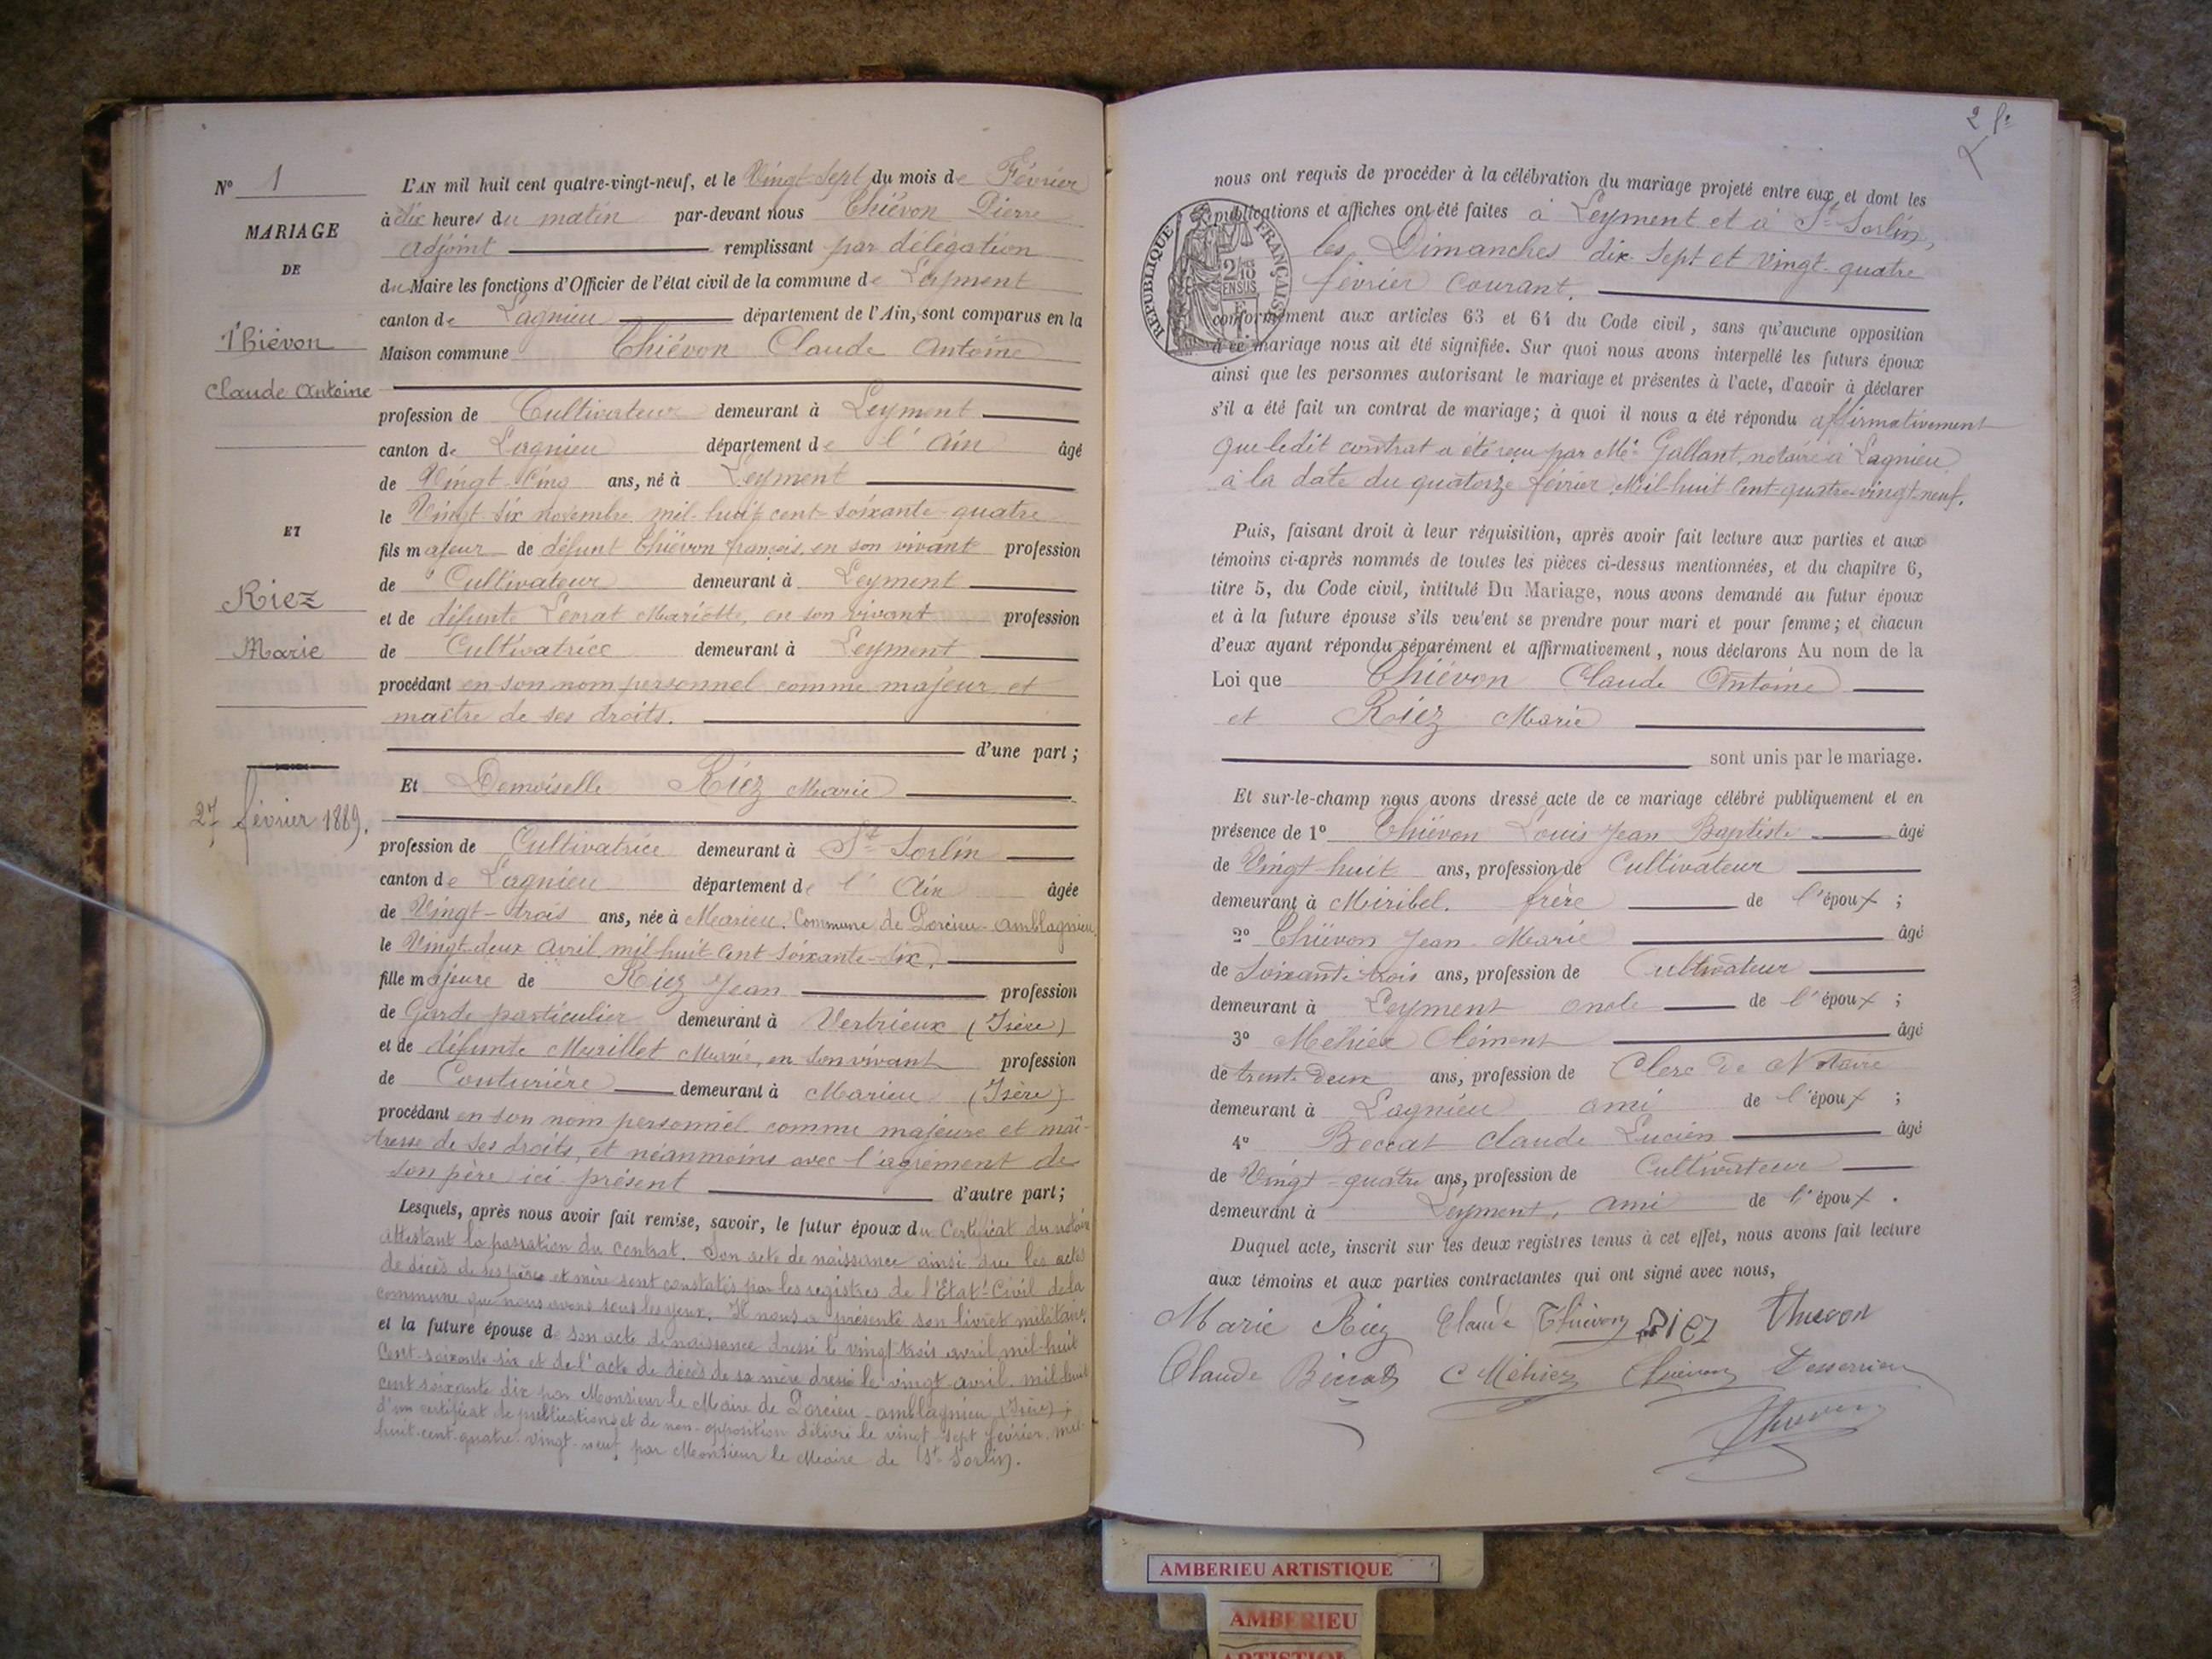 N° 1
MARIAGE
DE
Thiévon
Claude Antoine
ET
Riez
Marie
27 février 1889.
L'AN mil huit cent quatre-vingt-neuf, et le Vingt-Sept du mois de Février
à dix heures du matin par-devant nous Thiévon Pierre
adjoint remplissant par délégation
du Maire les fonctions d'Officier de l'état civil de la commune de Leyment
canton de Lagnieu département de l'Ain, sont comparus en la
Maison commune Thiévon Claude Antoine
profession de Cultivateur demeurant à Leyment
canton de Lagnieu département de l'Ain âgé
de Vingt-Cinq ans, né à Leyment
le Vingt-Six novembre mil-huit cent-soixante-quatre
fils majeur de défunt Thiévon françois, en son vivant profession
de Cultivateur demeurant à Leyment
et de défunte Mariette, en son vivant profession
de Cultivatrice demeurant à Leyment
procédant en son nom personnel comme majeur et
maître de ses droits.
d'une part ;
Et Demoiselle Riez Marie
profession de Cultivatrice demeurant à St Sorlin
canton de Lagnieu département de l'Ain âgée
de Vingt-trois ans, née à Marieu. Commune de Porcieu-Amblagnieu,
le Vingt-deux avril mil-huit-cent-soixante-six.
fille majeure de Riez Jean profession
de Garde particulier demeurant à Vertrieux (Isère)
et de défunte Murillet Marie, en son vivant profession
de Couturière demeurant à Marieu (Isère)
procédant en son nom personnel comme majeure et maî-
tresse de ses droits, et néanmoins avec l'agrément de
son père ici présent d'autre part;
Lesquels, après nous avoir fait remise, savoir, le futur époux du Certificat du notaire
attestant la passation du contrat. Son acte de naissance ainsi que les actes
de décès de ses père et mère sont constatés par les registres de l'Etat-Civil de la
commune que nous avons sous les yeux. Il nous a présenté son livret militaire.
et la future épouse d son acte de naissance dressé le vingt trois avril mil-huit
cent-soixante-six et de l'acte de décès de sa mère dressé le vingt avril mil-huit
cent soixante dix par Monsieur le Maire de Porcieu-amblagnieu (Isère) ;
d'un certificat de publications et de non-opposition délivré le vingt-sept février mil-
huit-cent-quatre-vingt-neuf par Monsieur le Maire de St Sorlin.
2
nous ont requis de procéder à la célébration du mariage projeté entre eux, et dont les
publications et affiches ont été faites à Leyment et à St Sorlin,
les Dimanches dix-Sept et vingt-quatre
février courant.
RÉPUBLIQUE FRANÇAISE
conformément aux articles 63 et 64 du Code civil, sans qu'aucune opposition
à ce mariage nous ait été signifiée. Sur quoi nous avons interpellé les futurs époux
ainsi que les personnes autorisant le mariage et présentes à l'acte, d'avoir à déclarer
s'il a été fait un contrat de mariage; à quoi il nous a été répondu affirmativement
que ledit contrat a été reçu par Me Gallant, notaire à Lagnieu
à la date du quatorze février mil-huit cent-quatre-vingt-neuf.
Puis, faisant droit à leur réquisition, après avoir fait lecture aux parties et aux
témoins ci-après nommés de toutes les pièces ci-dessus mentionnées, et du chapitre 6,
titre 5, du Code civil, intitulé Du Mariage, nous avons demandé au futur époux
et à la future épouse s'ils veu'ent se prendre pour mari et pour femme; et chacun
d'eux ayant répondu séparément et affirmativement, nous déclarons Au nom de la
Loi que Thiévon Claude Antoine
et Riez Marie
sont unis par le mariage.
Et sur-le-champ nous avons dressé acte de ce mariage célébré publiquement et en
présence de 1° Thiévon Louis Jean Baptiste âgé
de Vingt-huit ans, profession de Cultivateur
demeurant à Miribel. frère de l'époux ;
2° Thiévon Jean-Marie âgé
de soixante-trois ans, profession de Cultivateur
demeurant à Leyment oncle de l'époux ;
3° Méhier Clément âgé
de trente deux ans, profession de Clerc de Notaire
demeurant à Lagnieu ami de l'époux ;
4° Beccat Claude Lucien âgé
de Vingt-quatre ans, profession de Cultivateur
demeurant à Leyment, ami de l'époux.
Duquel acte, inscrit sur les deux registres tenus à cet effet, nous avons fait lecture
aux témoins et aux parties contractantes qui ont signé avec nous,
Marie Riez Claude Thiévon Riez Thievon
Claude Béccat C Méhier Thiévon
Thievon
AMBERIEU ARTISTIQUE
AMBERIEU
ARTISTIQUE